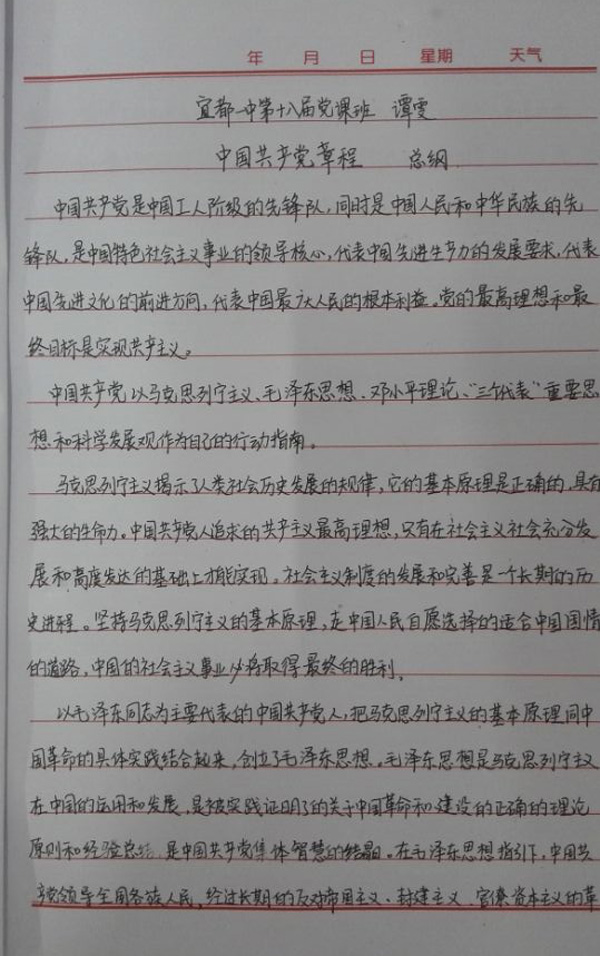 年 月 日 星期 天气
宜都一中第十八届党课班 谭雯
中国共产党章程 总纲
中国共产党是中国工人阶级的先锋队,同时是中国人民和中华民族的先
锋队,是中国特色社会主义事业的领导核心,代表中国先进生产力的发展要求,代表
中国先进文化的前进方向,代表中国最广大人民的根本利益。党的最高理想和最
终目标是实现共产主义。
中国共产党以马克思列宁主义、毛泽东思想、邓小平理论、“三个代表”重要思
想和科学发展观作为自己的行动指南。
马克思列宁主义揭示了人类社会历史发展的规律,它的基本原理是正确的,具有
强大的生命力。中国共产党人追求的共产主义最高理想,只有在社会主义社会充分发
展和高度发达的基础上才能实现。社会主义制度的发展和完善是一个长期的历
史进程。坚持马克思列宁主义的基本原理,走中国人民自愿选择的适合中国国情
的道路,中国的社会主义事业必将取得最终的胜利。
以毛泽东同志为主要代表的中国共产党人,把马克思列宁主义的基本原理同中
国革命的具体实践结合起来,创立了毛泽东思想。毛泽东思想是马克思列宁主义
在中国的运用和发展,是被实践证明了的关于中国革命和建设的正确的理论
原则和经验总结,是中国共产党集体智慧的结晶。在毛泽东思想指引下,中国共
产党领导全国各族人民,经过长期的反对帝国主义、封建主义、官僚资本主义的革